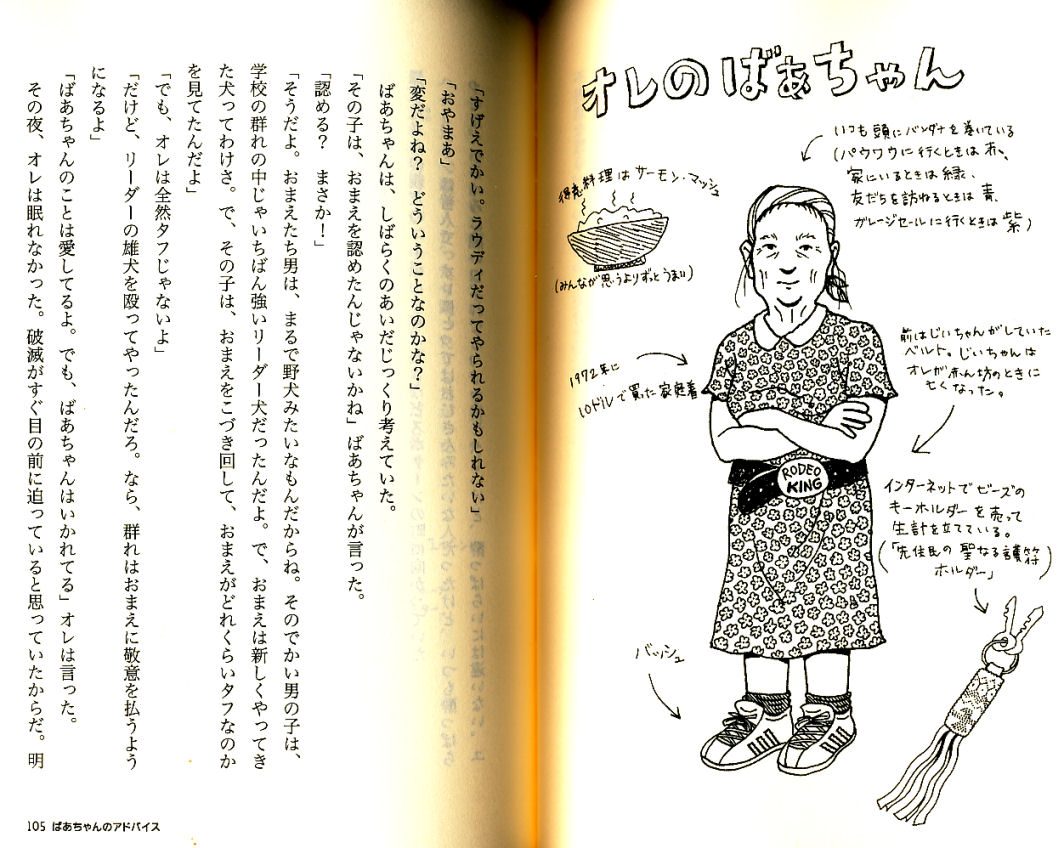 オレのばあちゃん
いつも頭にバンダナを巻いている
(パウワウに行くときは赤、
家にいるときは緑、
友だちを訪ねるときは青、
ガレージセールに行くときは紫)
得意料理はサーモン・マッシュ
(みんなが思うよりずっとうまい)
前はじいちゃんがしていた
ベルト。じいちゃんは
オレが赤ん坊のときに
亡くなった。
1972年に
10ドルで買った家庭着
RODEO
KING
インターネットでビーズの
キーホルダーを売って
生計を立てている。
(「先住民の聖なる護符
ホルダー」)
バッシュ
「すげえでかい。ラウディだってやられるかもしれない」
「おやまあ」
「変だよね? どういうことなのかな?」
ばあちゃんは、しばらくのあいだじっくり考えていた。
「その子は、おまえを認めたんじゃないかね」ばあちゃんが言った。
「認める? まさか!」
「そうだよ。おまえたち男は、まるで野犬みたいなもんだからね。そのでかい男の子は、
学校の群れの中じゃいちばん強いリーダー犬だったんだよ。で、おまえは新しくやってき
た犬ってわけさ。で、その子は、おまえをこづき回して、おまえがどれくらいタフなのか
を見てたんだよ」
「でも、オレは全然タフじゃないよ」
「だけど、リーダーの雄犬を殴ってやったんだろ。なら、群れはおまえに敬意を払うよう
になるよ」
「ばあちゃんのことは愛してるよ。でも、ばあちゃんはいかれてる」オレは言った。
その夜、オレは眠れなかった。破滅がすぐ目の前に迫っていると思っていたからだ。明
105 ばあちゃんのアドバイス